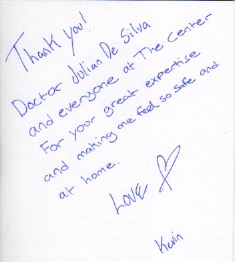 Thank you!
Doctor Julian De Silva
and everyone at The Center
For your great expertise
and making me feel so safe and
at home.
Love
Kevin